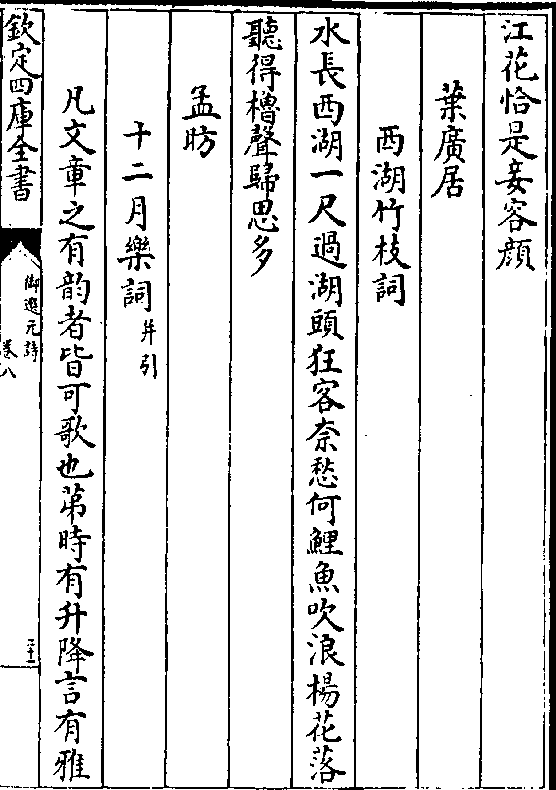 江花恰是妾容顔
葉廣居
西湖竹枝詞
水長西湖一尺過湖頭狂客奈愁何鯉魚吹浪楊花落
聽得櫓聲歸思多
孟昉
十二月樂詞并引
凡文章之有韵者皆可歌也苐時有升降言有雅
欽定四庫全書
御選元詩
卷八